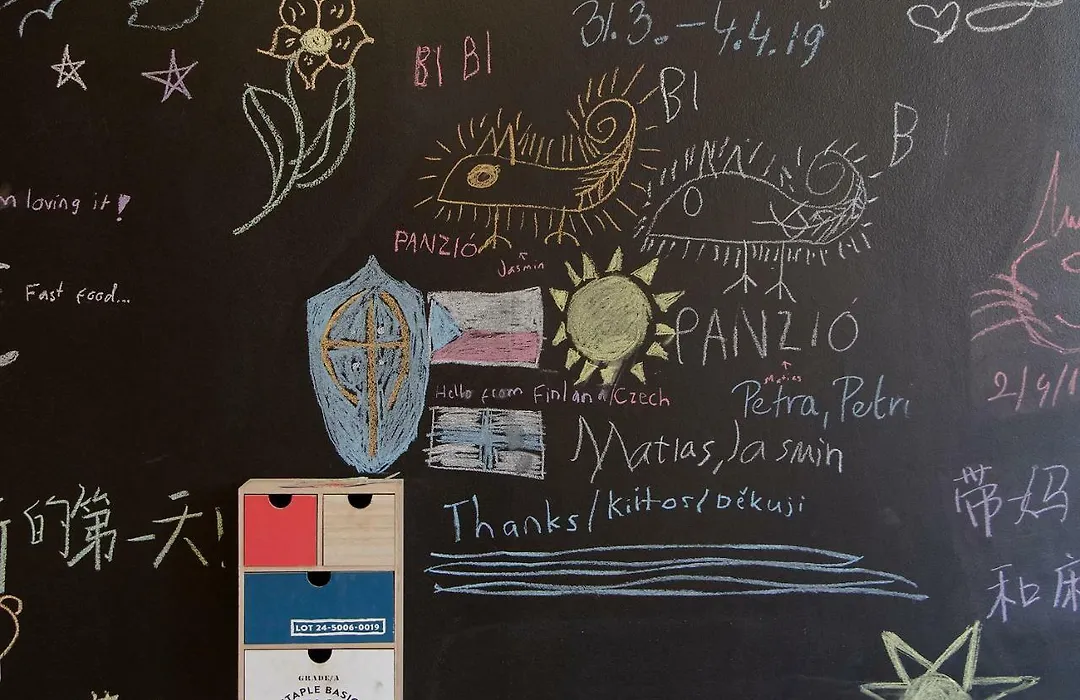 31.3. – 4.4.19
BI BI
BI
B I
m loving it!
PANZIÓ
Jasmin
Fast food...
PANZIÓ
Matias
Hello from Finland/Czech
Petra, Petri
2/4/1
Matias, Jasmin
Thanks/Kiitos/Děkuji
的第一天!
带妈
和
LOT 24-5006-0019
GRADE/A
STAPLE BASIC